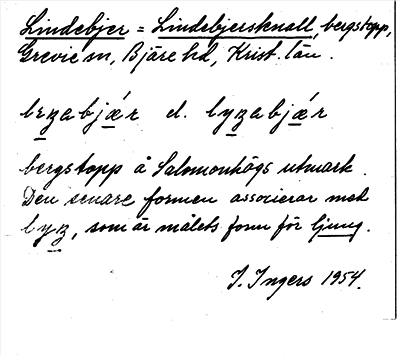 Lindebjer = Lindebjersknall, bergstopp,
Grevie sn, Bjäre hd, Krist. län.
bergstopp å Salomonhögs utmark.
Den senare formen associerar med
lyŋ, som är målets form för ljung.
J. Ingers 1954.